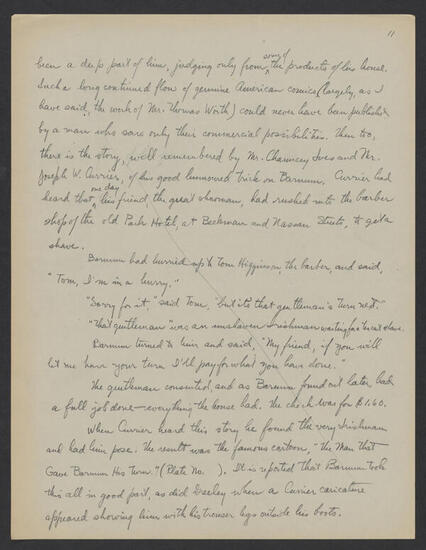 11
been a deep part of him, judging only from some of the products of his house.
Such a long continued flow of genuine American comics (largely, as I
have said, the work of Mr. Thomas Worth) could never have been published
by a man who saw only their commercial possibilities. Then too,
there is the story, well remembered by Mr. Chauncey Ives and Mr.
Joseph W. Currier, of his good humored trick on Barnum. Currier had
heard that one day his friend, the great showman, had rushed into the barber
shop of the old Park Hotel, at Beekman and Nassau Streets, to get a
shave.
Barnum had hurried up to Tom Higginson, the barber, and said,
"Tom, I'm in a hurry."
"Sorry for it," said Tom, "but it's that gentleman's turn next."
"That gentleman" was an unshaven Irishman waiting for his shave.
Barnum turned to him and said, "My friend, if you will
let me have your turn I'll pay for what you have done."
The gentleman consented, and as Barnum found out later had
a full job done—everything the house had. The check was for $1.60.
When Currier heard this story he found the very Irishman
and had him pose. The result was the famous cartoon, "The Man that
Gave Barnum His Turn." (Plate No. ). It is reported that Barnum took
this all in good part, as did Greeley when a Currier caricature
appeared showing him with his trouser legs outside his boots.